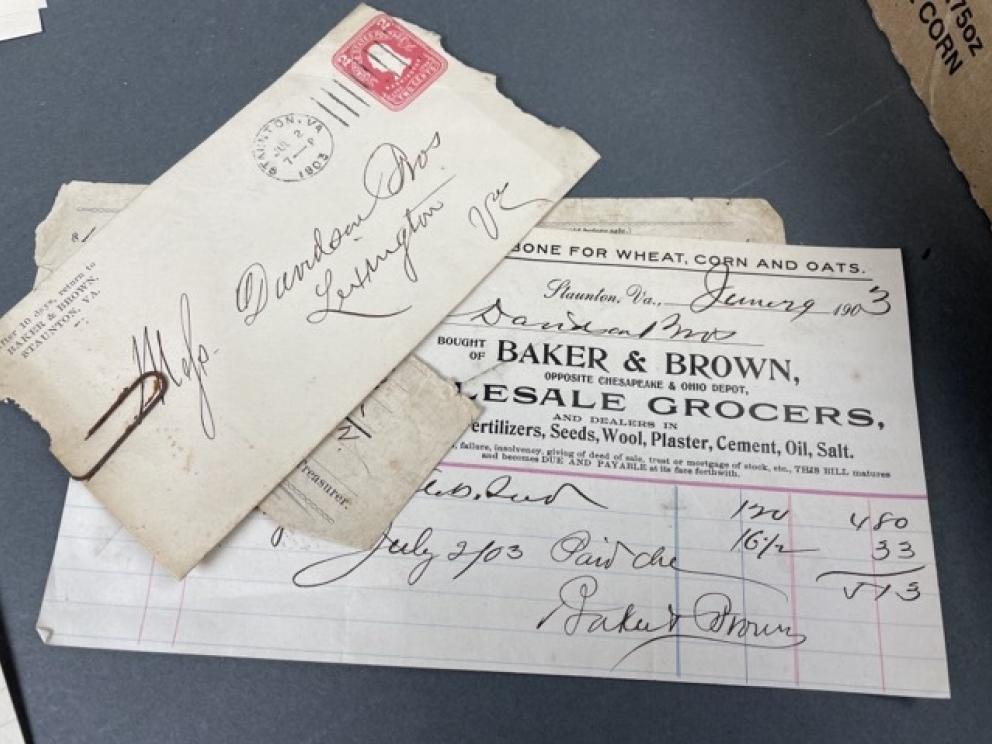 75oz
CORN
STAUNTON, VA.
JUL 2
7 - P
1903
TWO CENTS
Davidson Bros
Lexington
Va
After 10 days, return to
BAKER & BROWN,
STAUNTON, VA.
BONE FOR WHEAT, CORN AND OATS.
Staunton, Va., June 29 1903
Davidson Bros
BOUGHT OF BAKER & BROWN,
OPPOSITE CHESAPEAKE & OHIO DEPOT,
LESALE GROCERS,
AND DEALERS IN
ertilizers, Seeds, Wool, Plaster, Cement, Oil, Salt.
failure, insolvency, giving of deed of sale, trust or mortgage of stock, etc., THIS BILL matures
and becomes DUE AND PAYABLE at its face forthwith.
120 480
16 1/2 33
513
July 2/03 Paid
Baker & Brown
Treasurer.